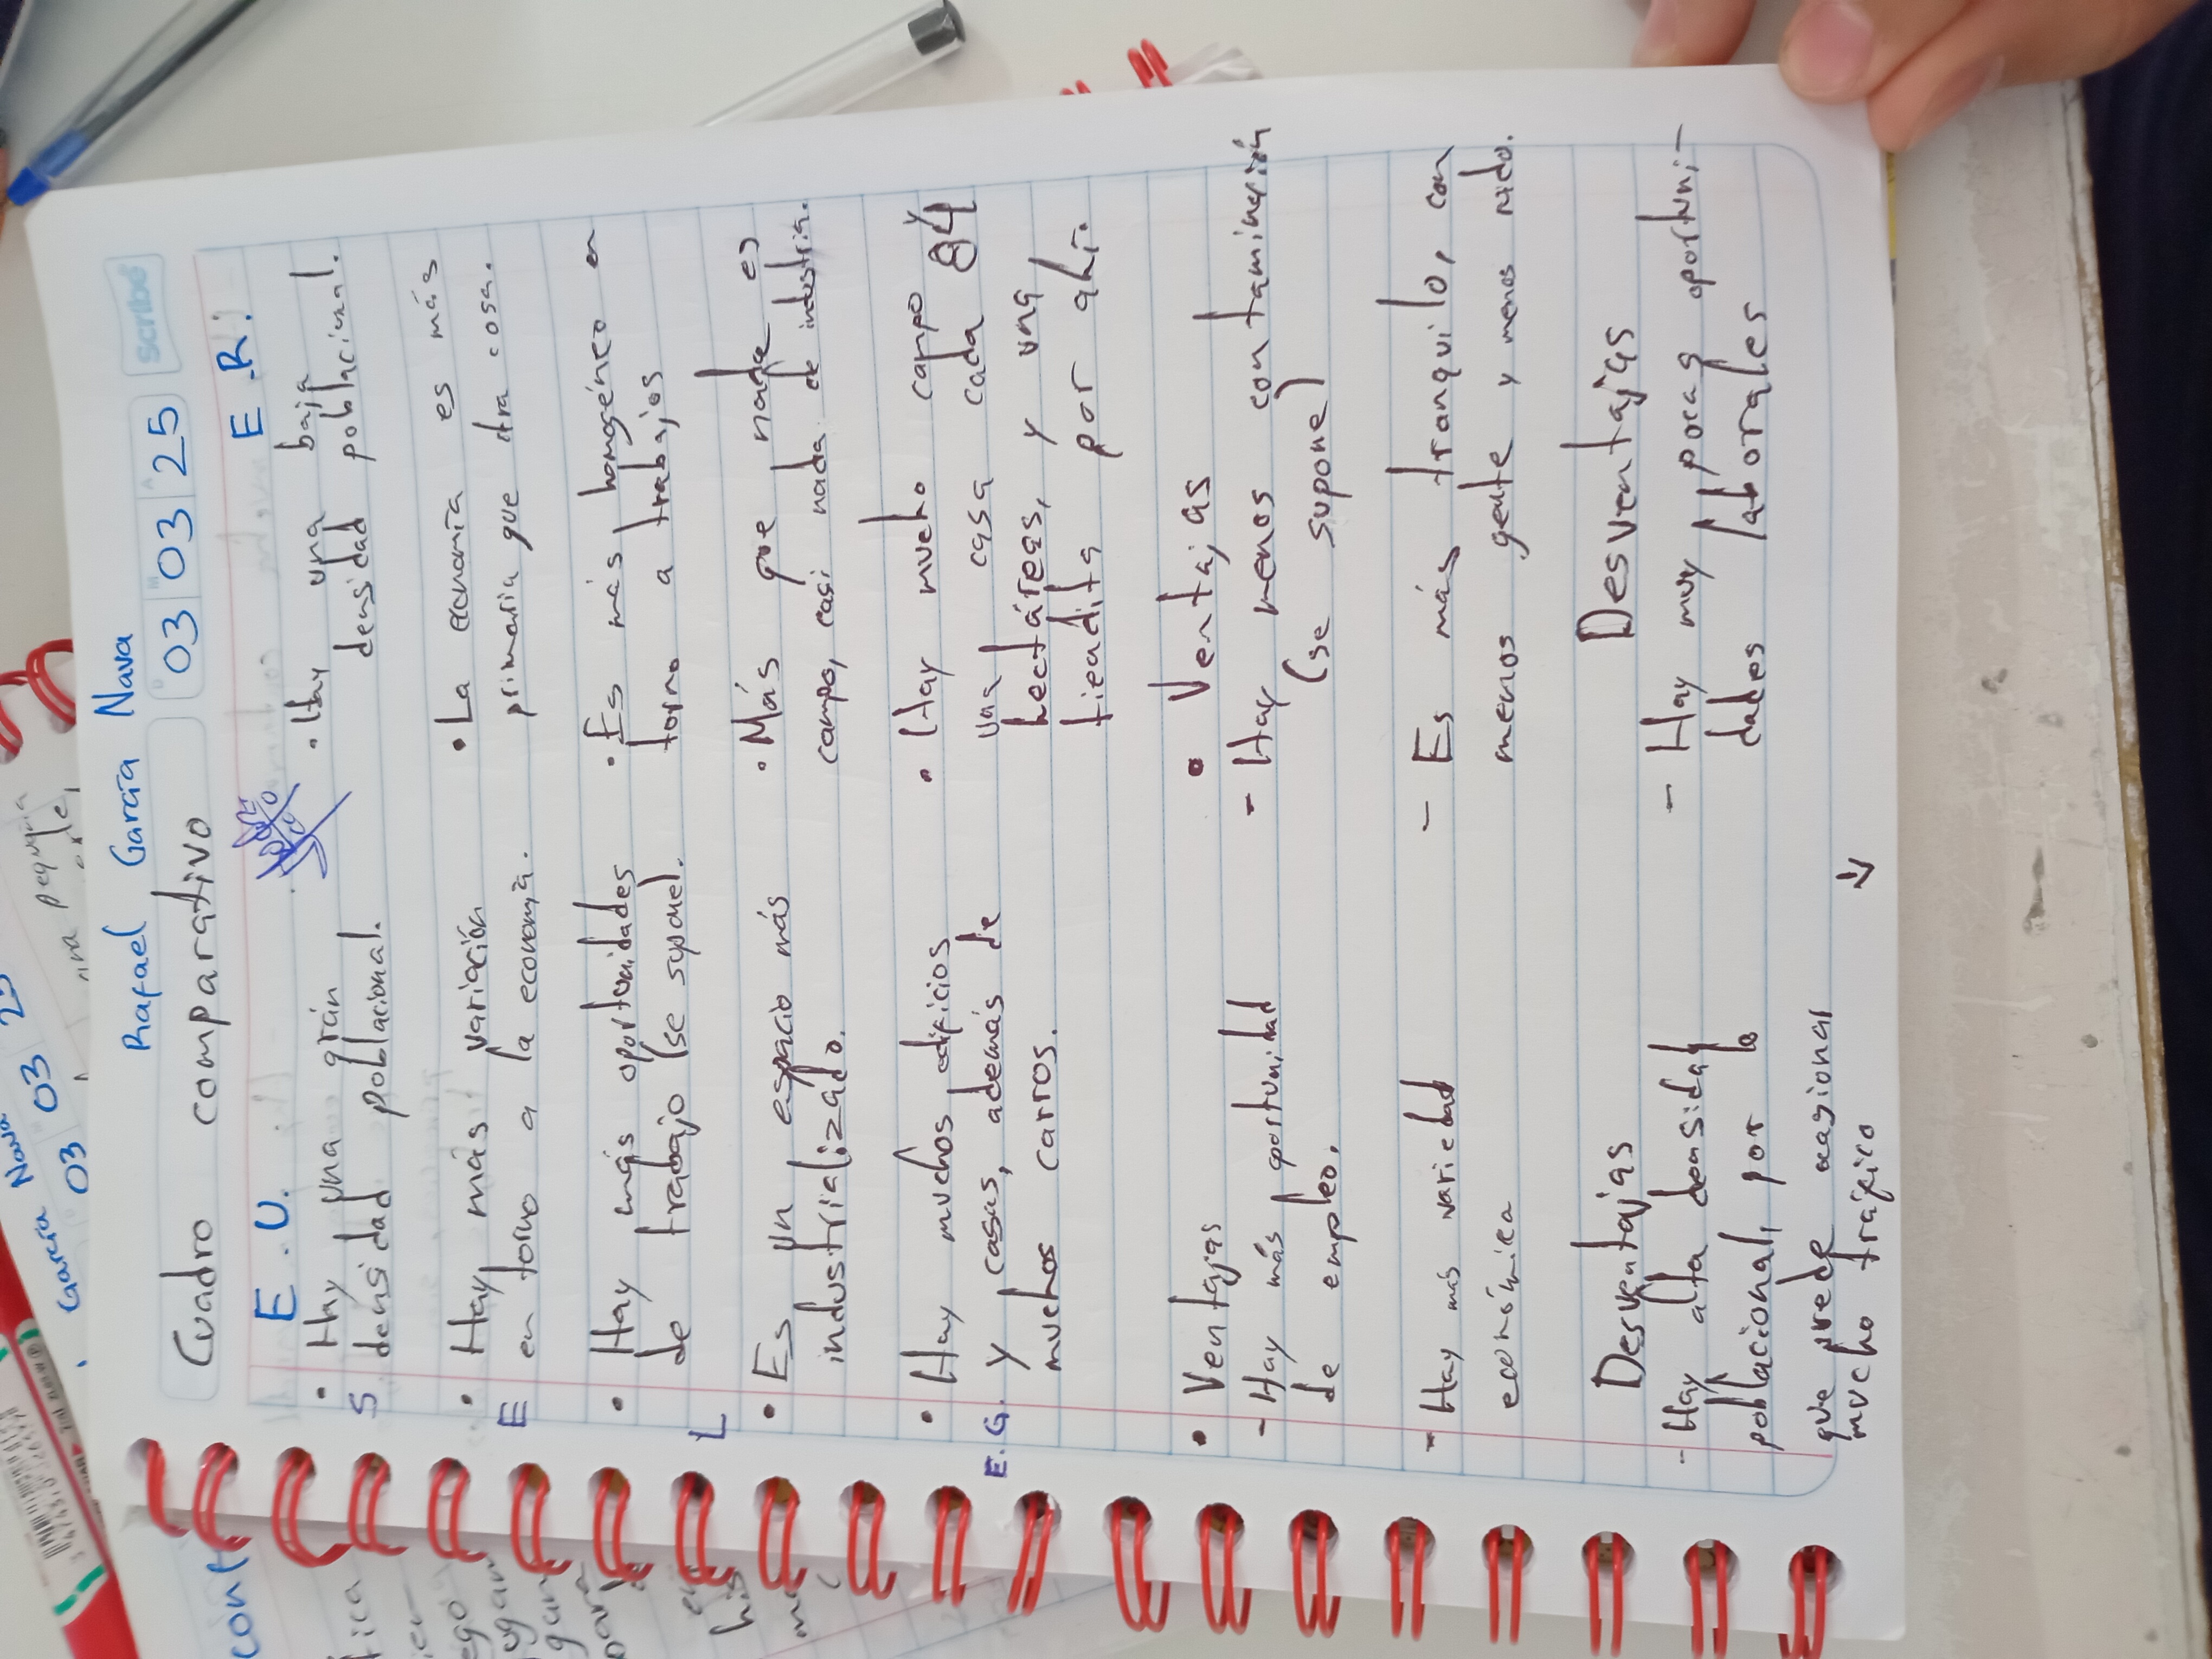 Rafael García Nava
Cuadro comparativo
03 03 25
scribe
E.U.
• Hay una grán
densidad poblacional.
S
• Hay más variación
en torno a la economía.
E
• Hay más oportunidades
de trabajo (se supone).
L
• Es un espacio más
industrializado.
• Hay muchos edificios
y casas, además de
muchos carros.
E.G.
• Ventajas
- Hay más oportunidad
de empleo.
- Hay más variedad
económica
Desventajas
- Hay alta densidad
poblacional, por lo
que puede ocasionar
mucho tráfico
E.R.
• Hay una baja
densidad poblacional.
• La economía es más
primaria que otra cosa.
• Es más homogéneo en
torno a trabajos
• Más que nada es
campo, casi nada de industria.
• Hay mucho campo y
una casa cada 84
hectáreas, y una
tiendita por ahí.
• Ventajas
- Hay menos contaminación
(se supone)
- Es más tranquilo, con
menos gente y menos ruido.
Desventajas
- Hay muy pocas oportuni-
dades laborales
García Nava
03 03 25
una pequeña
cont